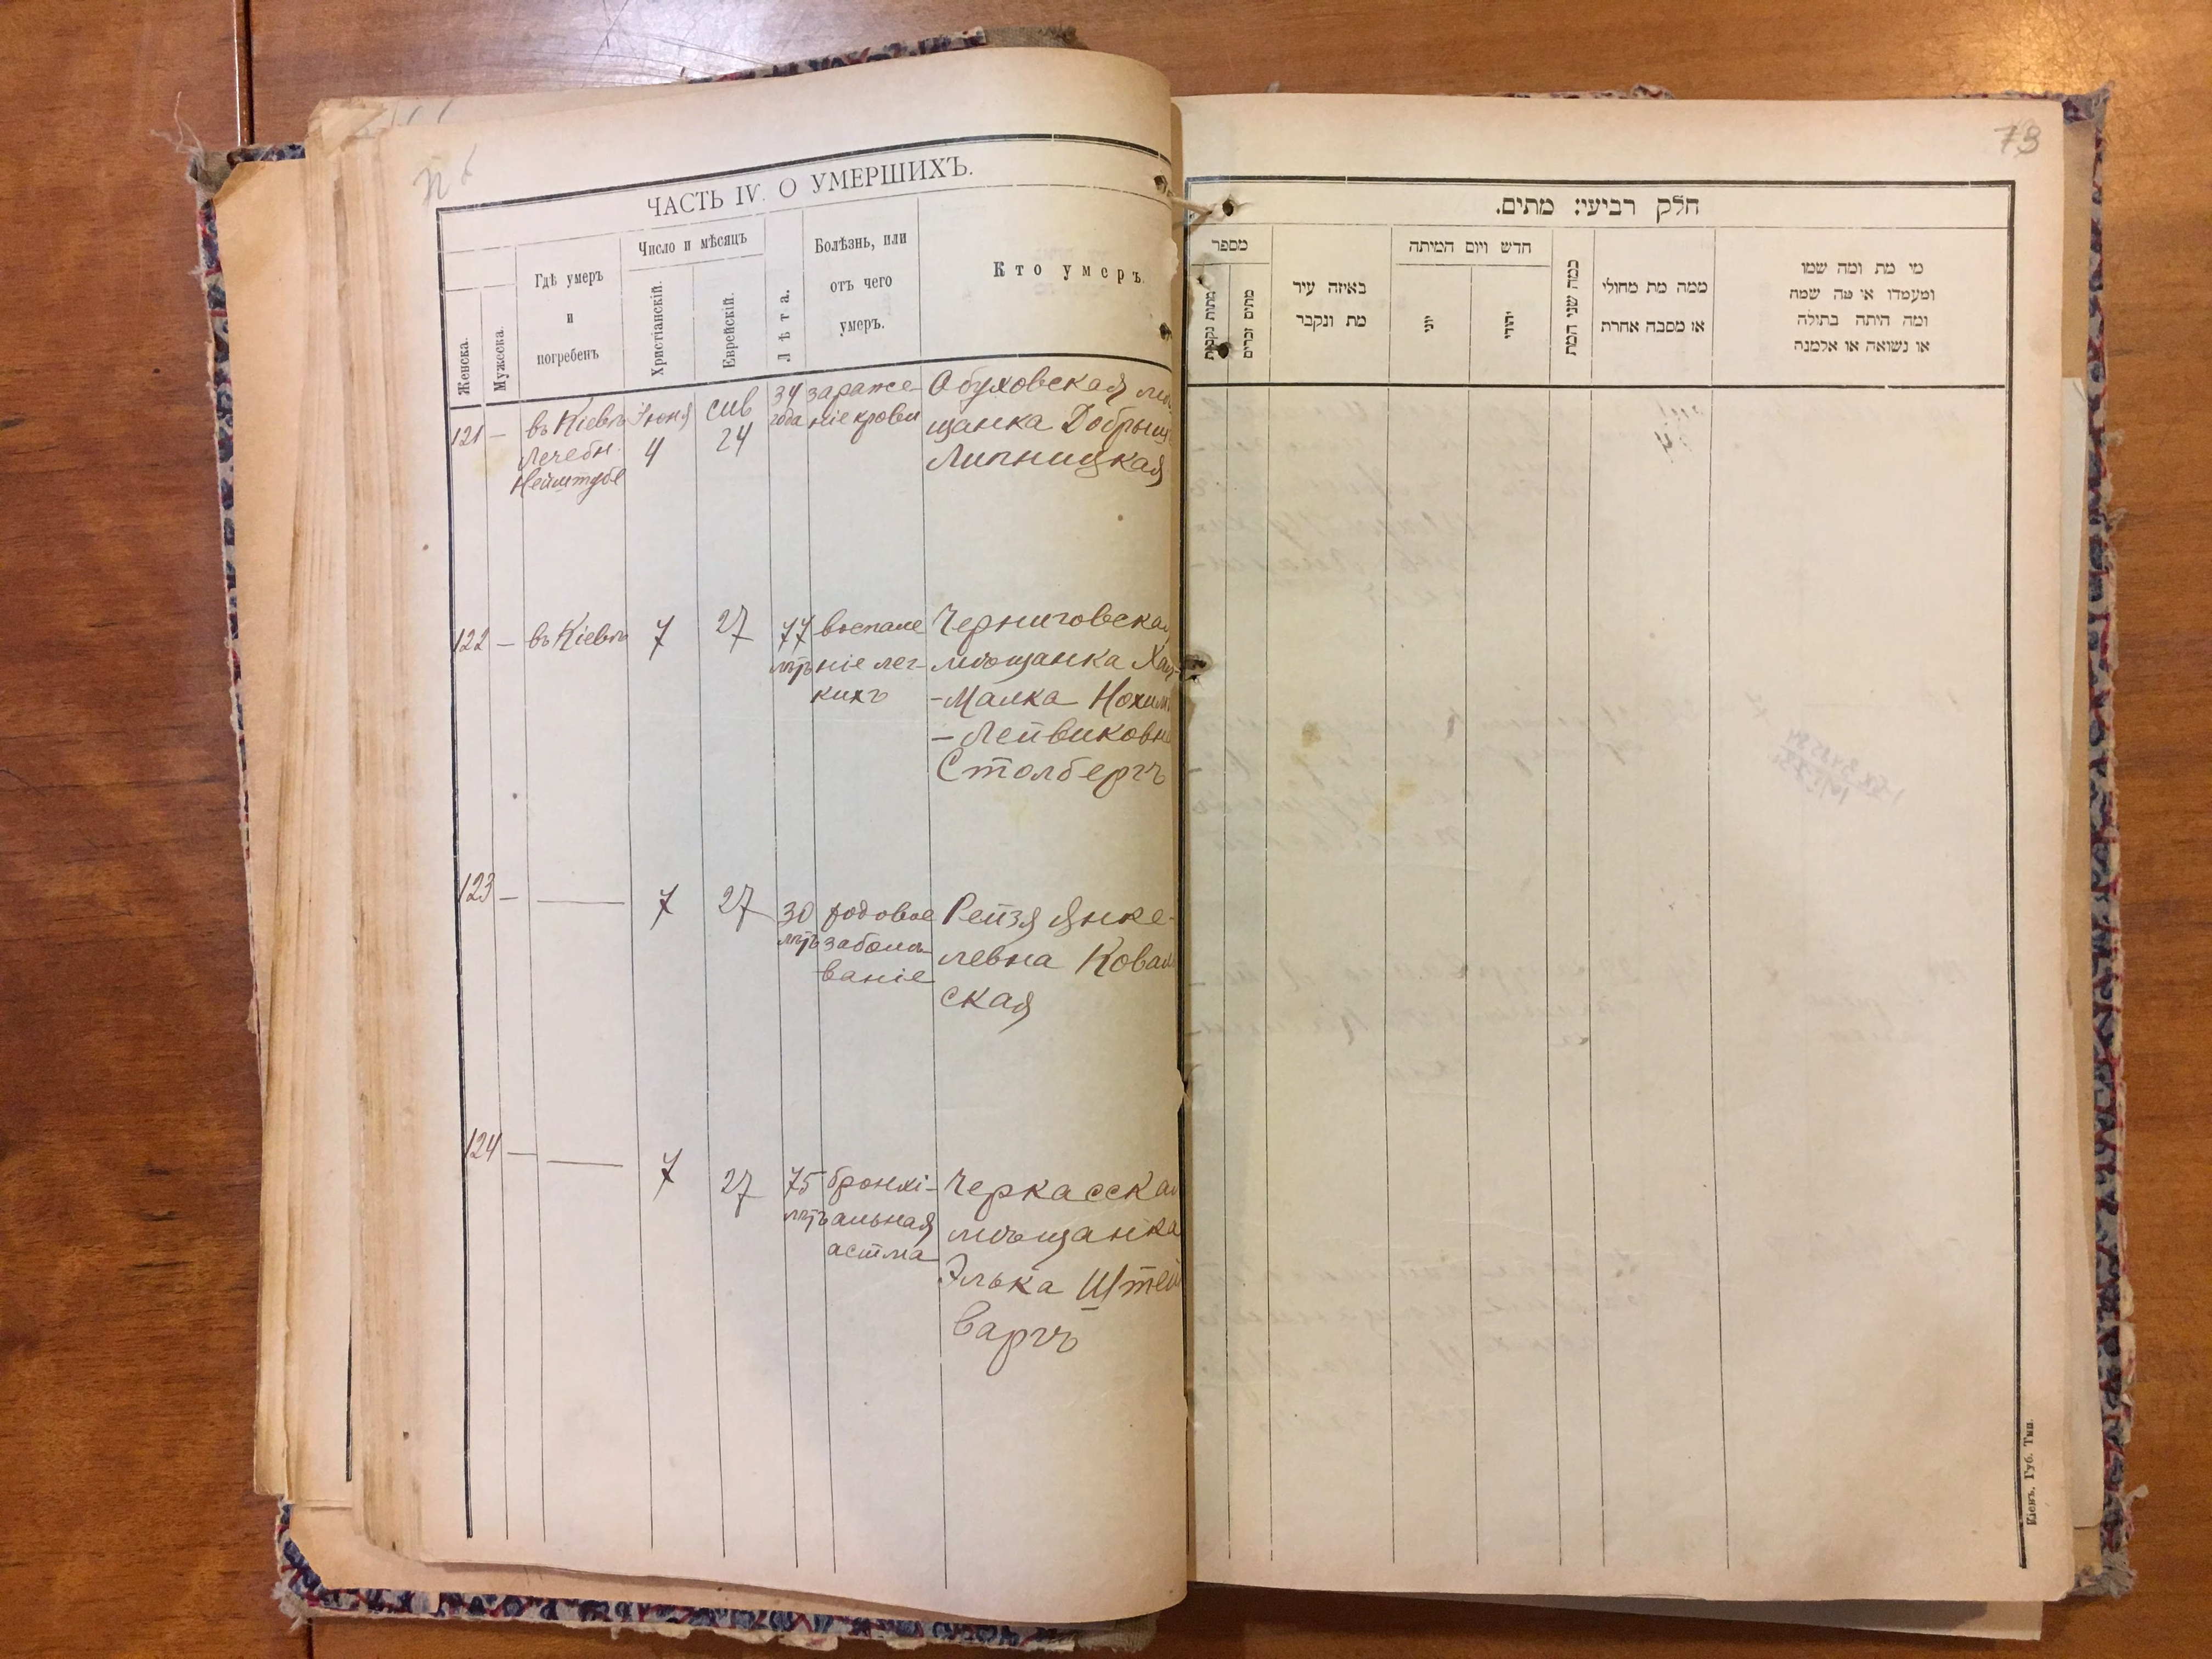 ЧАСТЬ IV. О УМЕРШИХЪ.
Женска.
Мужеска.
Гдѣ умеръ
и
погребенъ
Число и мѣсяцъ
Христіанскій.
Еврейскій.
Лѣта.
Болѣзнь, или
отъ чего
умеръ.
Кто умеръ.
121 — въ Кіевѣ Іюня сив 34 зараже- Обуховская
Лечебн. 4 24 года ніе крови щанка
Нейштубе Липницкая
122 — въ Кіевѣ 7 27 77 воспале Черниговская
лѣтъ ніе лег- мѣщанка
кихъ -Малка
-Лейвиковна
Столбергъ
123 — — 7 27 30 родовое Рейзя Янке-
лѣтъ заболѣ- левна
ваніе ская
124 — — 7 27 75 бронхі- Черкасская
лѣтъ альная мѣщанка
астма Элька Штей
варгъ
73
חלק רביעי: מתים.
מספר
מתות נקבות
מתים זכרים
באיזה עיר
מת ונקבר
חדש ויום המיתה
יוני
יהודי
כמה שני המת
ממה מת מחולי
או מסבה אחרת
מי מת ומה שמו
ומעמדו או מה שמה
ומה היתה בתולה
או נשואה או אלמנה
Кіевъ. Губ. Тип.